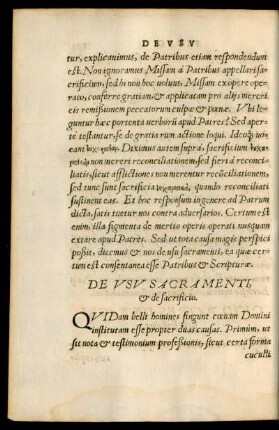 DE VSV
tur, explicanimus, de Patribus etiam respondendum
est. Non ignoramus Missam à Patribus appellari sa-
crificium, sed hi non hoc volunt, Missam ex opere ope-
rato, conferre gratiam, & applicatam pro alijs mereri
eis remissionem peccatorum culpæ & pœnæ. Vbi le-
guntur hæc portenta verborū apud Patres? Sed aper-
tè testantur, se de gratiarum actione loqui. Ideoq́; vo-
cant Diximus autem suprà, sacrificium
non mereri reconciliationem, sed fieri à recon-
ciliatis, sicut afflictiones non merentur recōciliationem,
sed tunc sunt sacrificia quando reconciliati
sustinent eas. Et hoc responsum in genere ad Patrum
dicta, satis tuetur nos contra aduersarios. Certum est
enim, illa figmenta de merito operis operati nusquam
extare apud Patres. Sed ut tota causa magis perspici
poßit, dicemus & nos de usu sacramenti, ea quæ cer-
tum est consentanea esse Patribus & Scripturæ.
DE VSV SACRAMENTI,
& de sacrificio.
QVIDam belli homines fingunt cœnam Domini
institutam esse propter duas causas. Primùm, ut
sit nota & testimonium profeßionis, sicut certa forma
cuculli